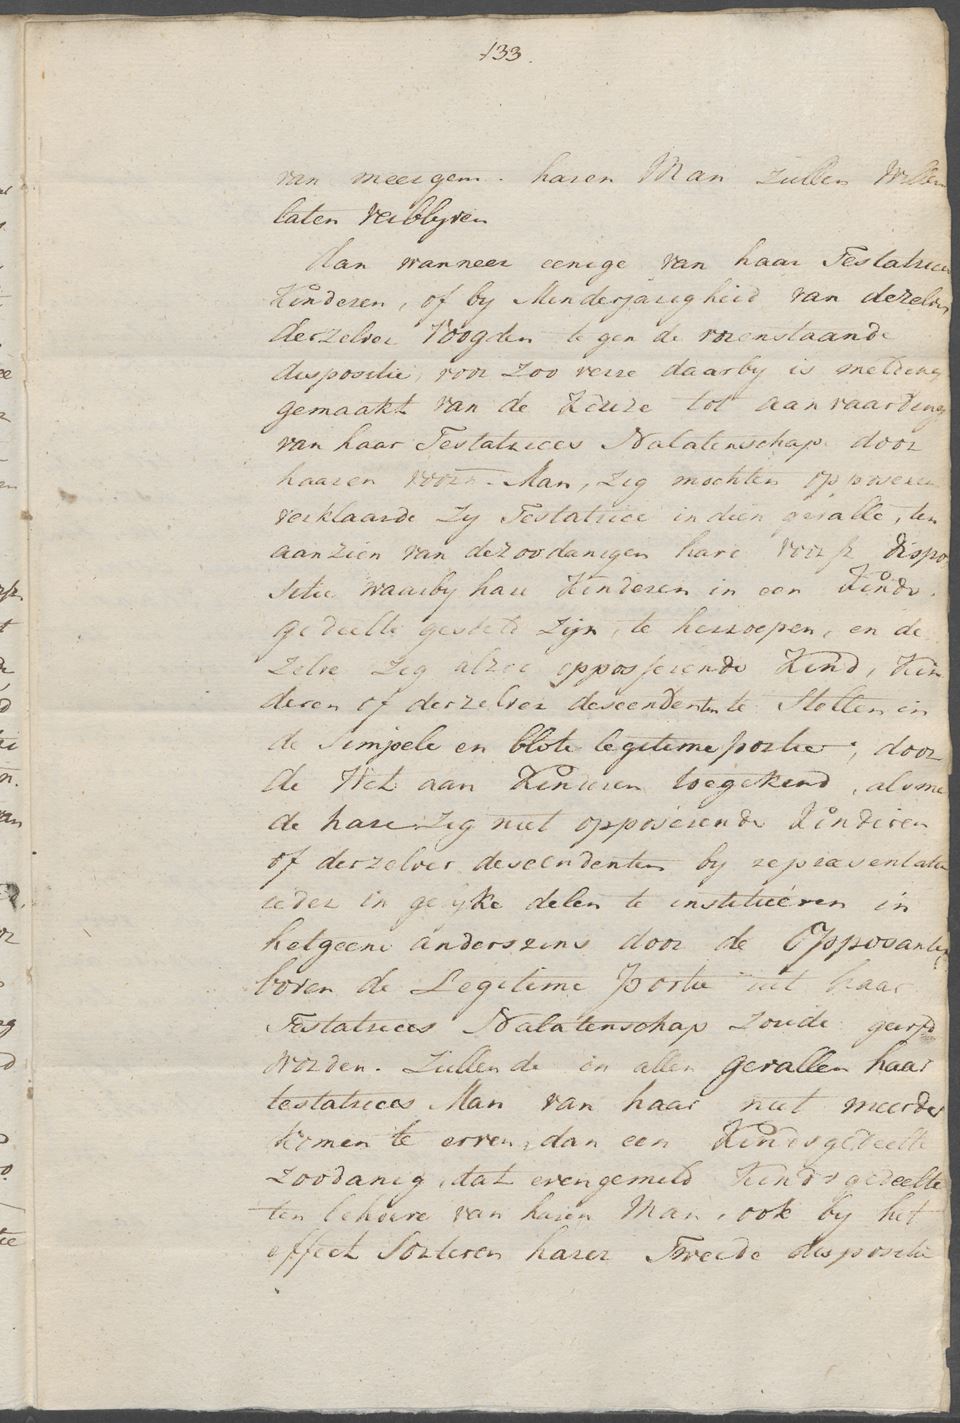 133.
van meergem. haren Man zullen Willen
laten verblyven
dan wanneer eenige van haar Testatrices
Kinderen, of by Minderjarigheid van dezelve
derzelver Voogden tegen de vorenstaande
dispositie, voor zoo verre daarby is melding
gemaakt van de Keuze tot aanvaarding
van haar Testatrices Nalatenschap door
haaren voorn. Man, zig mochten opposeren
verklaarde Zy Testatrice in dien gevalle, ten
aanzien van dezoodanigen hare voorsz dispo
sitie waarby hare Kinderen in een Kinds
gedeelte gesteld zijn, te herroepen, en de
zelve zig alzoo opposeerende Kind, Kin
deren of derzelver descendenten te Stellen in
de Simpele en blote legitime portie, door
de Wet aan Kinderen toegekend, alsme
de hare zig niet opposerende Kinderen
of derzelver descendenten by representatie
ieder in gelyke delen te institueren in
hetgeene anderszins door de Opposanten
boven de Legitime Portie uit haar
Testatrices Nalatenschap zoude geerfd
worden. Zullende in allen gevallen haar
testatrices Man van haar niet meerder
komen te erven, dan een Kindsgedeelte
zoodanig, dat evengemeld Kindsgedeelte
ten behoeve van haren Man, ook by het
effect Sorteren harer Tweede dispositie